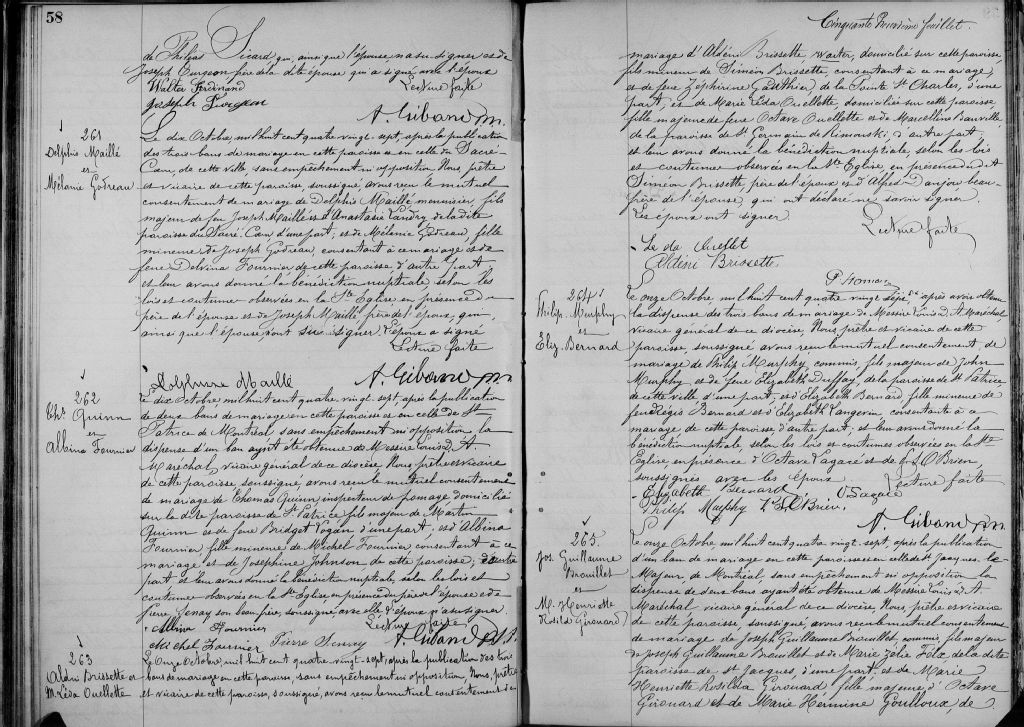 58
de Philéas Sicard qui, ainsi que l'épouse n'a su signer et de
Joseph Turgeon père de la dite épouse qui a signé avec l'époux
Lecture faite
Walter Ferdinand
Joseph Turgeon
A. Giband ptre.
261
Delphis Maillé
et
Mélanie Godreau
Le dix Octobre, mil huit cent quatre vingt-sept, après la publication
des trois bans de mariage en cette paroisse et en celle du Sacré-
Cœur, de cette ville, sans empêchement ni opposition Nous, prêtre
et vicaire de cette paroisse, soussigné, avons reçu le mutuel
consentement de mariage de Delphis Maillé menuisier, fils
majeur de feu Joseph Maillé et d'Anastasie Landry de la dite
paroisse du Sacré-Cœur d'une part; et de Mélanie Godreau, fille
mineure de Joseph Godreau, consentant à ce mariage et de
feue Delvina Fournier de cette paroisse, d'autre part
et leur avons donné la bénédiction nuptiale, selon les
lois et coutumes observées en la Ste Eglise en présence du
père de l'épouse et de Joseph Maillé frère de l'époux, qui,
ainsi que l'épouse, n'ont su signer. L'époux a signé
Lecture faite
Delphine Maillé
A. Giband ptre.
262
Ths Quinn
et
Albina Fournier
Le dix Octobre, mil huit cent quatre vingt-sept, après la publication
de deux bans de mariage en cette paroisse et en celle de St
Patrice de Montréal sans empêchement ni opposition la
dispense d'un ban ayant été obtenue de Messire Louis D. A.
Maréchal, vicaire général de ce diocèse, Nous prêtre et vicaire
de cette paroisse, soussigné, avons reçu le mutuel consentement
de mariage de Thomas Quinn, inspecteur de pavage domicilié
sur la dite paroisse de St Patrice fils majeur de Martin
Quinn et de feue Bridget Hogan d'une part, et d'Albina
Fournier fille mineure de Michel Fournier consentant à ce
mariage et de Josephine Johnson de cette paroisse; d'autre
part et leur avons donné la bénédiction nuptiale selon les lois et
coutumes observées en la Ste Eglise en présence du père de l'épouse et de
Pierre Senay son beau frère, soussignés avec elle. L'époux n'a su signer.
Lecture faite
Albina Fournier
Michel Fournier
Pierre Senay
A. Giband ptre.
263
Aldéri Brissette et
M. Léda Ouellette
Le onze Octobre, mil huit cent quatre-vingt-sept, après la publication des trois
bans de mariage en cette paroisse, sans empêchement ni opposition Nous, prêtre
et vicaire de cette paroisse, soussigné, avons reçu le mutuel consentement de
Cinquante huitième feuillet.
mariage d'Aldéri Brissette, waiter, domicilié sur cette paroisse,
fils mineur de Siméon Brissette, consentant à ce mariage,
et de feue Zéphirine Gauthier, de la Pointe St Charles, d'une
part; et de Marie Léda Ouellette, domiciliée sur cette paroisse
fille majeure de feu Octave Ouellette et de Marcelline Banville,
de la paroisse de St Germain de Rimouski, d'autre part,
et leur avons donné la bénédiction nuptiale, selon les lois
et coutumes observées en la Ste Eglise, en présence de
Siméon Brissette, père de l'époux et d'Alfred Anjou beau-
frère de l'épouse, qui ont déclaré ne savoir signer.
Les époux ont signé.
Lecture faite
Aldéri Brissette
264
Philip. Murphy
et
Eliz. Bernard
Le onze Octobre, mil huit cent quatre vingt sept, après avoir obtenu
la dispense des trois bans de mariage de Messire Louis D. A. Maréchal
vicaire général de ce diocèse, Nous prêtre et vicaire de cette
paroisse, soussigné avons reçu le mutuel consentement de
mariage de Philip Murphy, commis, fils majeur de John
Murphy et de feue Elizabeth Duffay, de la paroisse de St Patrice
de cette ville d'une part, et d'Elizabeth Bernard, fille mineure de
feu Régis Bernard et d'Elizabeth Langevin consentante à ce
mariage de cette paroisse d'autre part, et leur avons donné la
bénédiction nuptiale, selon les lois et coutumes observées en la Ste
Eglise, en présence d'Octave Lagacé et de O'Brien,
soussignés avec les époux.
Lecture faite
Elizabeth Bernard
O Lagacé
Philip Murphy
O'Brien.
A. Giband ptre.
265
Jos. Guillaume
Brouillet
et
M. Henriette
Rosilda Girouard
Le onze Octobre mil huit cent quatre vingt-sept, après la publication
d'un ban de mariage en cette paroisse et en celle de St Jacques le
Majeur de Montréal, sans empêchement ni opposition la
dispense de deux bans ayant été obtenue de Messire Louis D. A.
Maréchal vicaire général de ce diocèse, Nous, prêtre et vicaire
de cette paroisse, soussigné, avons reçu le mutuel consentement
de mariage de Joseph Guillaume Brouillet, commis, fils majeur
de Joseph Guillaume Brouillet et de Marie Zoïe Félix, de la dite
paroisse de St Jacques, d'une part, et de Marie
Henriette Rosilda Girouard fille majeure d'Octave
Girouard et de Marie Hermine Goulloux de